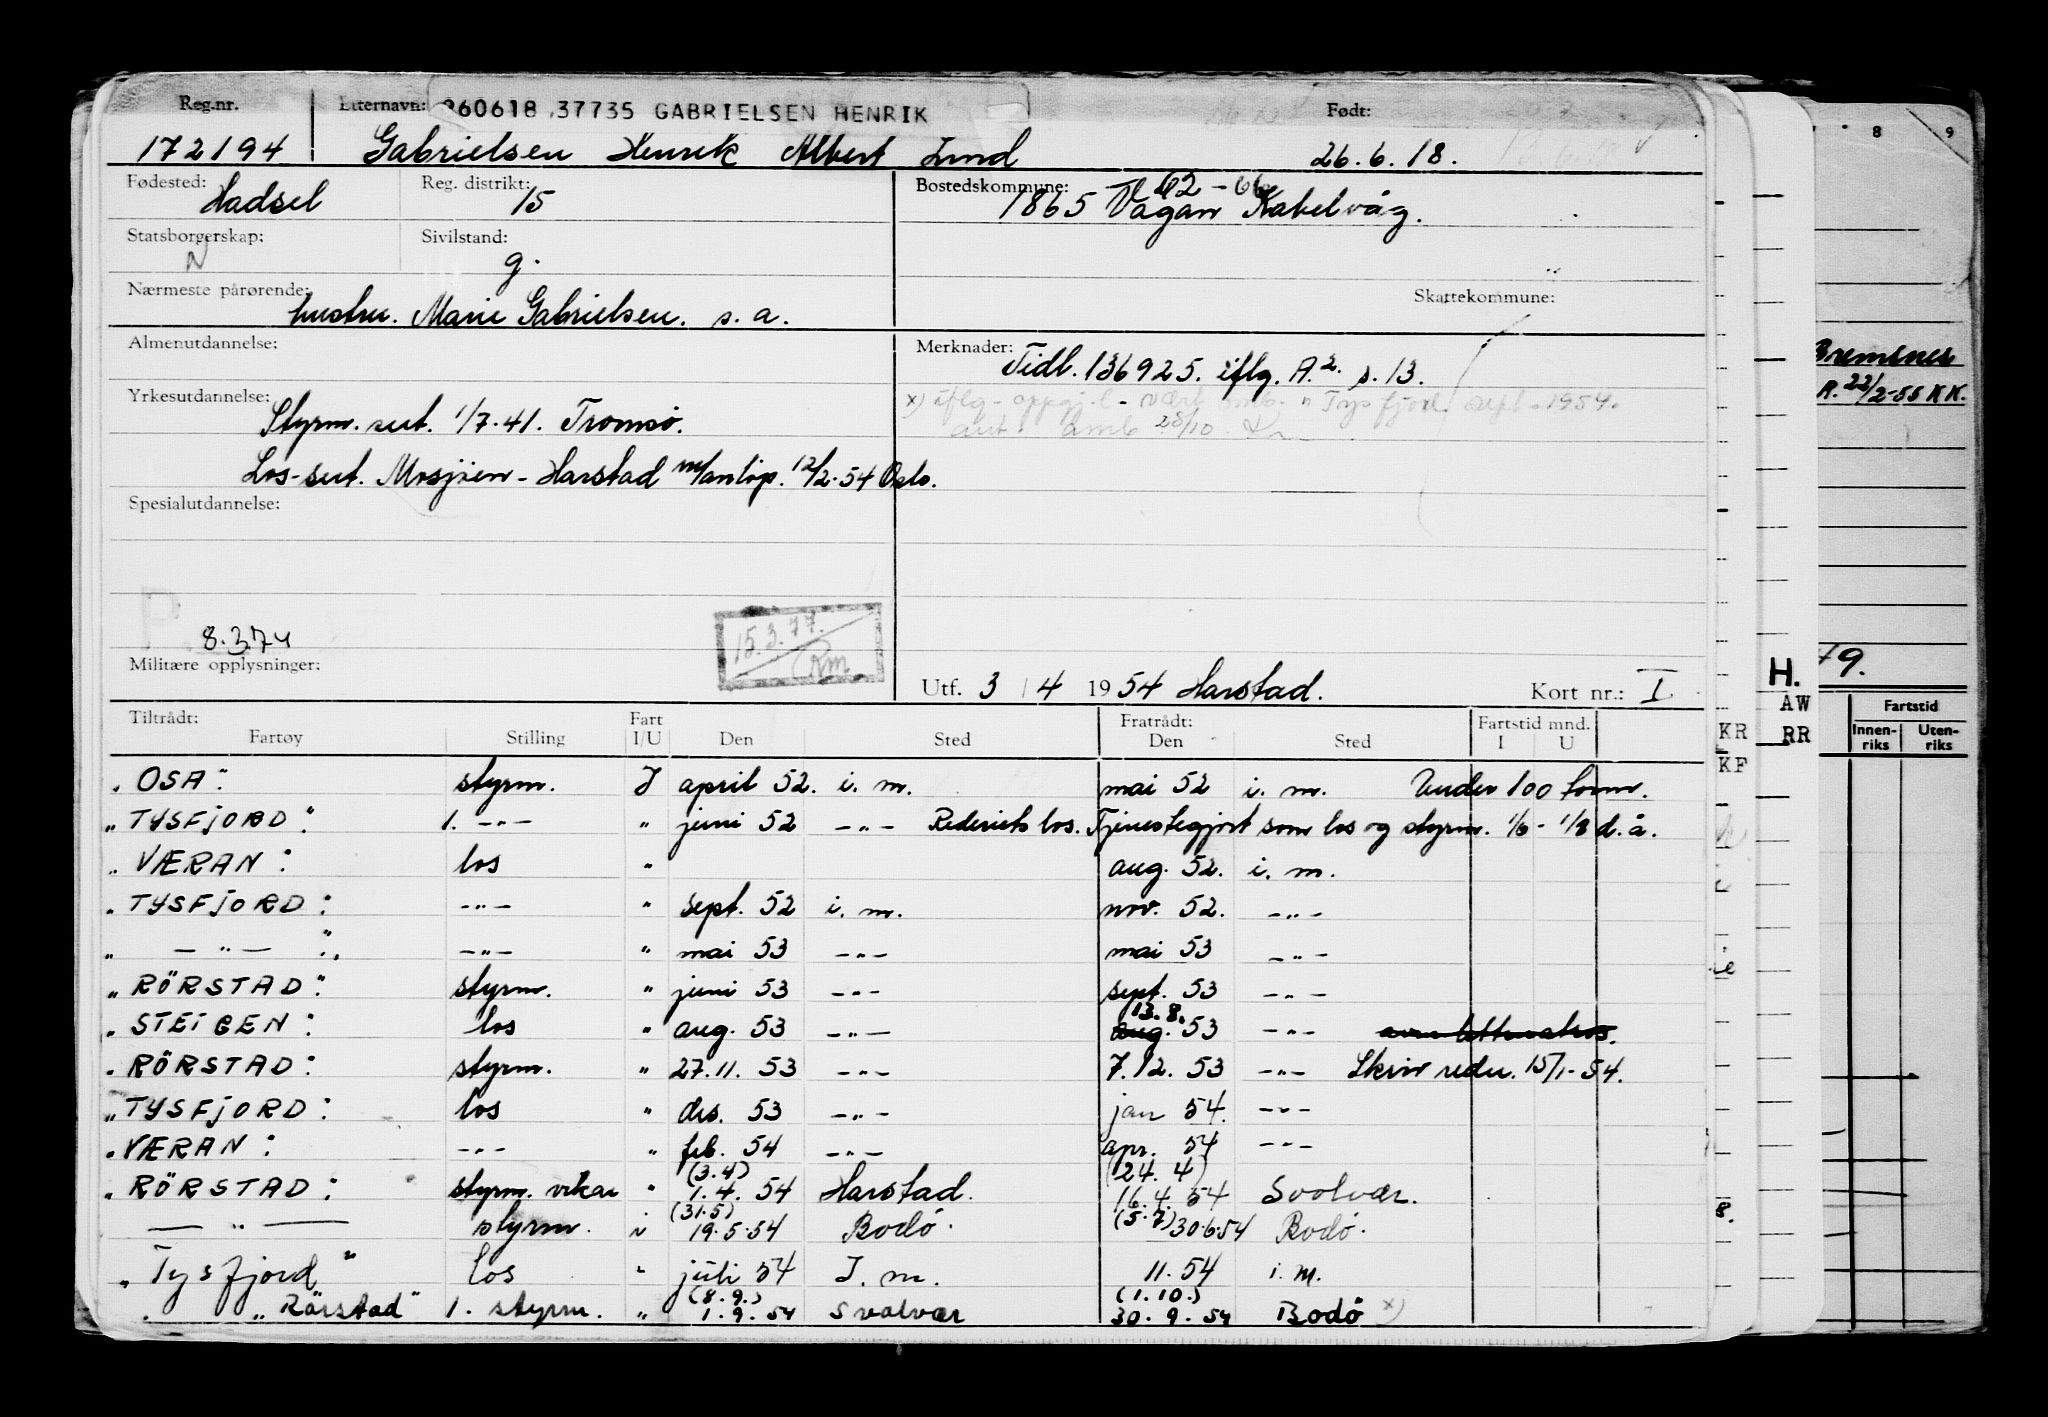 Reg.nr. Etternavn: 260618 37735 GABRIELSEN HENRIK Født:
172194 Gabrielsen Henrik Albert Lind 26.6.18.
Fødested: Hadsel Reg. distrikt: 15 Bostedskommune: 1865 Vågan Kabelvåg.
Statsborgerskap: N Sivilstand: g.
Nærmeste pårørende: hustru. Marie Gabrielsen. s.a. Skattekommune:
Almenutdannelse: Merknader: Tidl. 136925. iflg. A.2. s.13.
Yrkesutdannelse: x) iflg. Tysfjord sept. 1954.
Styrm. sert. 1/7.41. Tromsø. 28/10
Los-sert. Mosjøen - Harstad m/anløp. 12/2.54 Oslo.
Spesialutdannelse:
8.3.74 15.3.77. Rm
Militære opplysninger: Utf. 3 / 4 1954 Harstad. Kort nr.: I
Tiltrådt: Fart Fratrådt: Fartstid mnd.
Fartøy Stilling I/U Den Sted Den Sted I U
"OSA" styrm. I april 52. i. m. mai 52 i. m. Under 100 tonn.
"TYSFJORD" 1. -"- " juni 52 -"- Rederiets los. Tjenestegjort som los og styrm. 1/6 - 1/8 d.å.
"VÆRAN" los " aug. 52. i. m.
"TYSFJORD" -"- " sept. 52 i. m. nov. 52. -"-
" -"- " -"- " mai 53 -"- mai 53 -"-
"RÖRSTAD" styrm. " juni 53 -"- sept. 53 -"-
"STEIGEN" los " aug. 53 -"- 13.8. 53 -"-
"RÖRSTAD" styrm. " 27.11. 53 -"- 7.12. 53 -"- Skriv reder. 15/1-54.
"TYSFJORD" los " des. 53 -"- jan 54. -"-
"VÆRAN" -"- " feb. 54 -"- apr. 54 -"-
(3.4) (24.4)
"RÖRSTAD" styrm. vikar " 1.4. 54 Harstad. 16.4. 54 Svolvær.
(31.5)
-"- styrm. i 19.5.54 Bodö. (5.7) 30.6.54 Bodö.
"Tysfjord" los " juli 54 I. m. 11.54 i. m.
(8.9.) (1.10.)
"Rörstad" 1. styrm. " 1.9.54 Svolvær 30.9.54 Bodö x)
8 9
Bremsnes
R. 22/2-55 KK.
H. 49.
AW
KR RR
KF
Fartstid
Innen-riks Uten-riks
8.